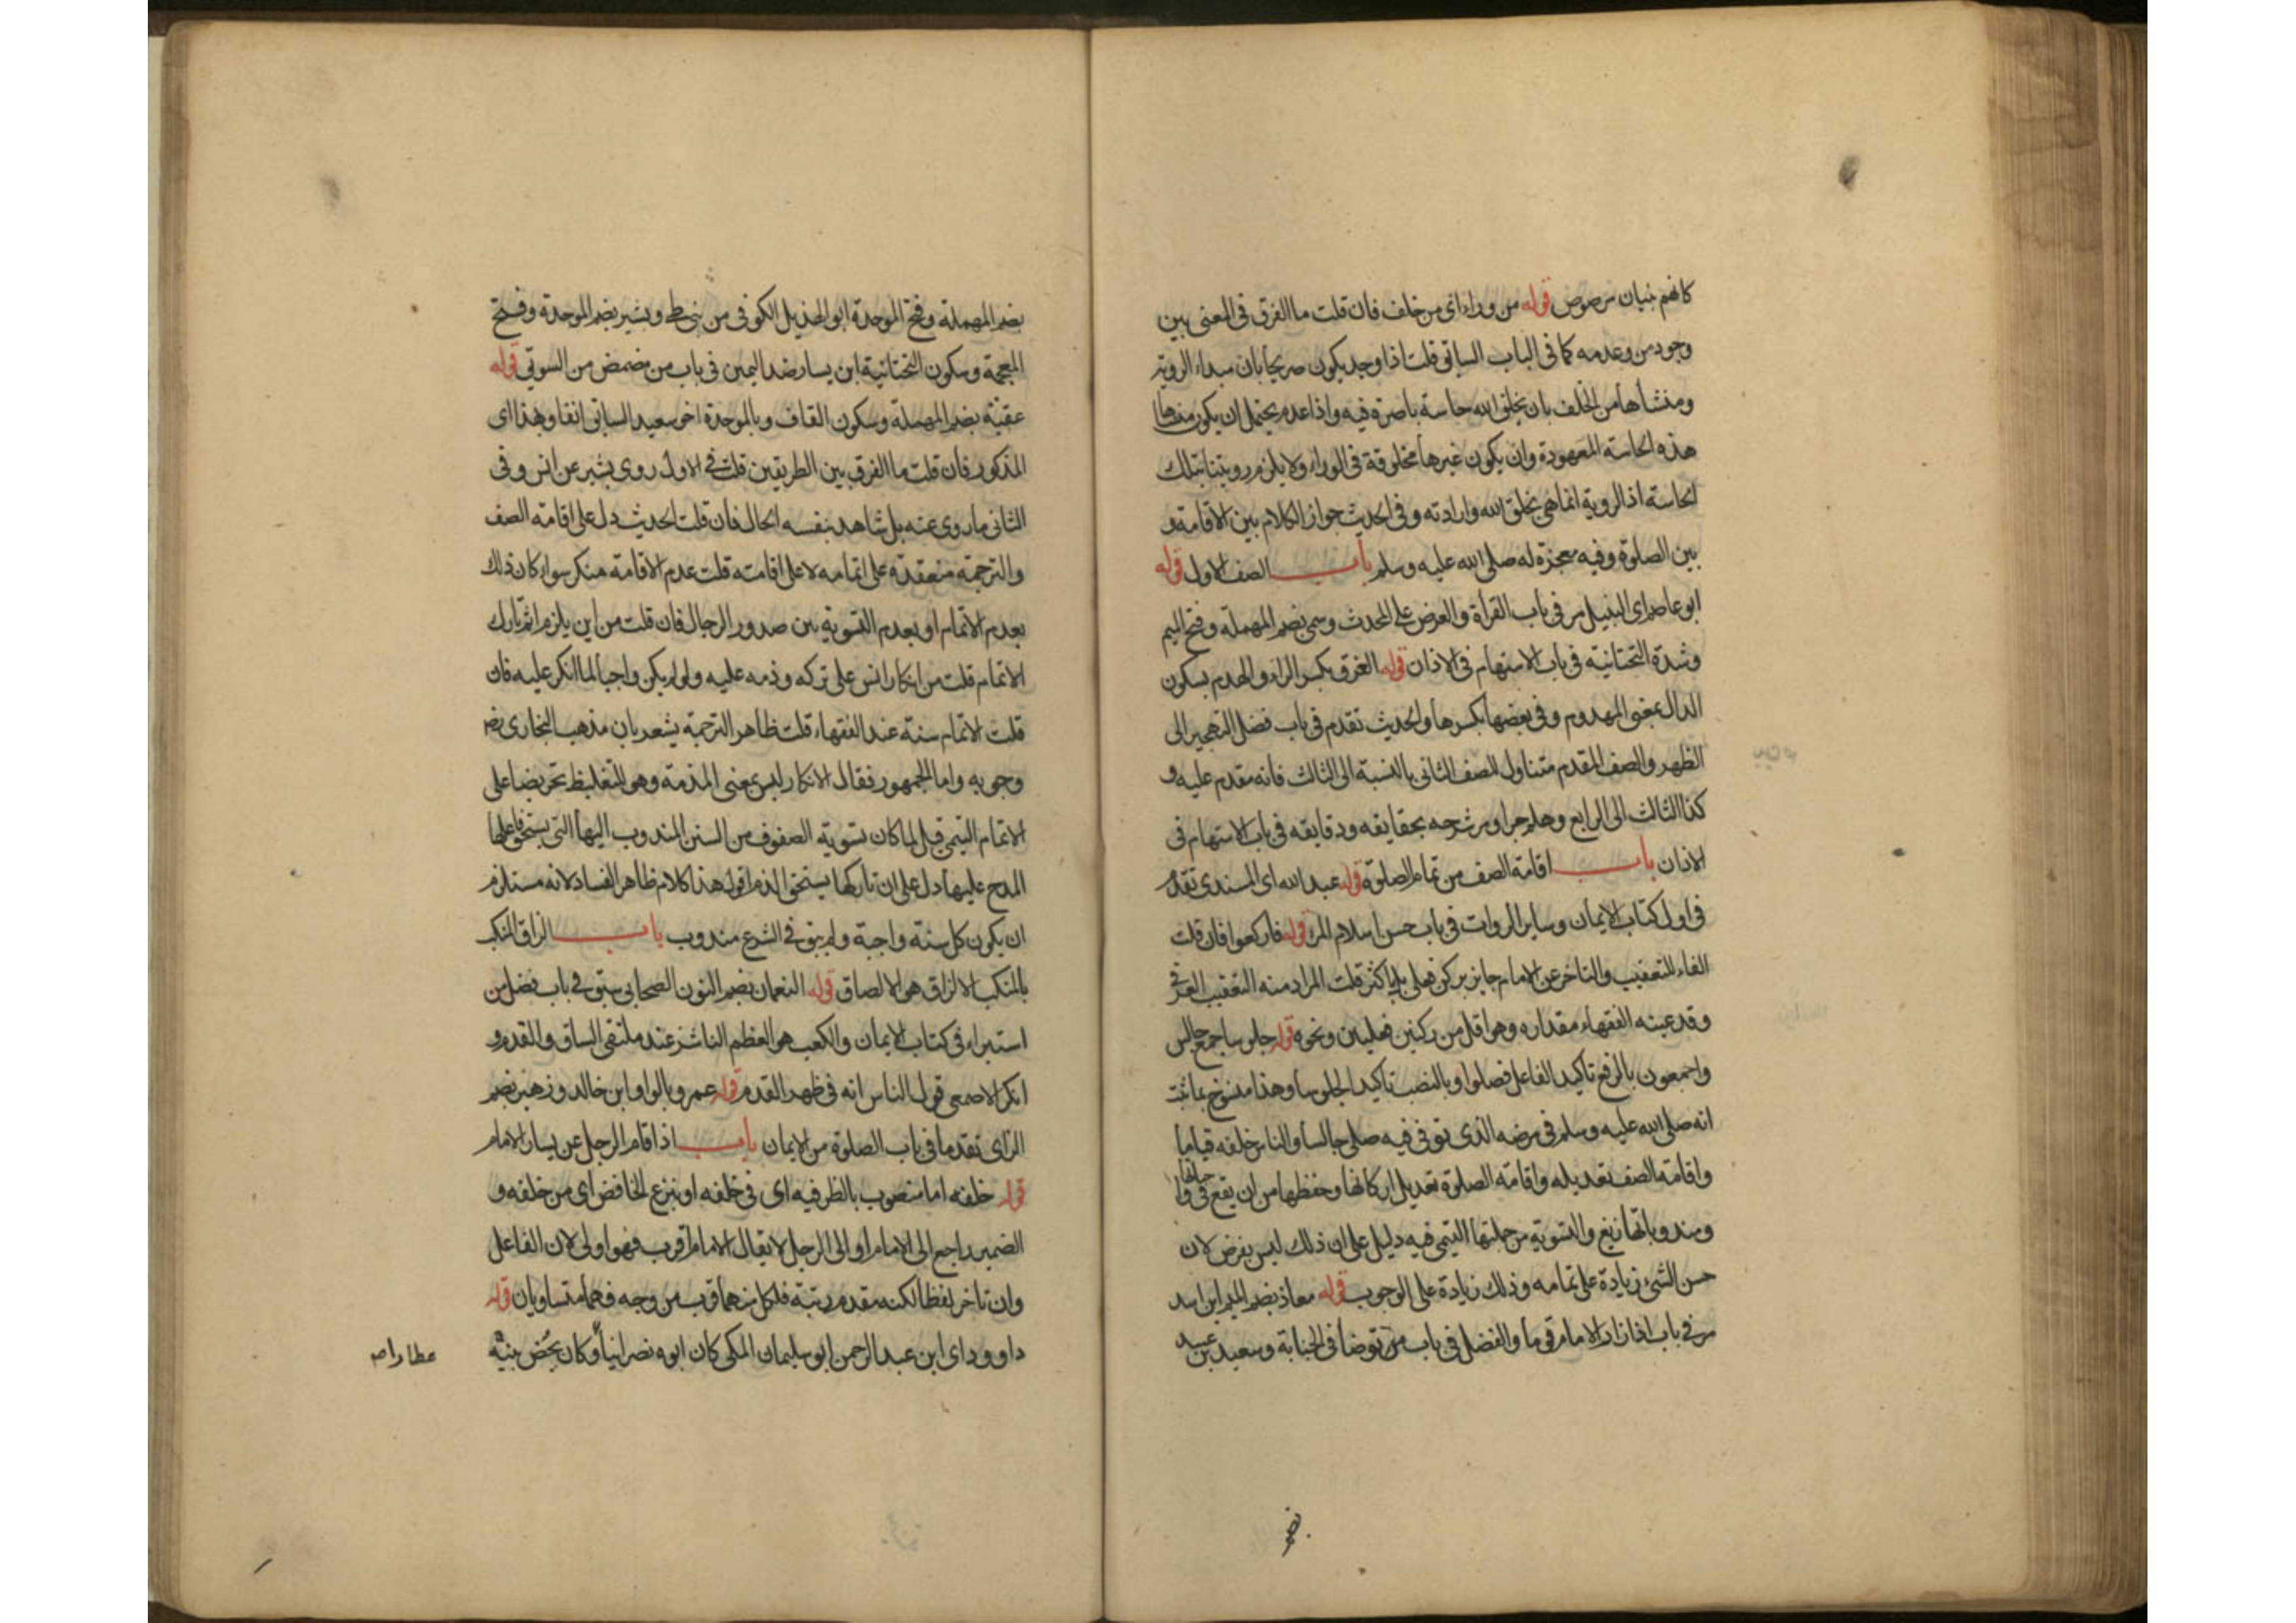 كانهم بنيان مرصوص قوله من وراءاى من خلف فان قلت ما الفرق فى المعنى بين
وجود من وعدمه كما فى الباب السابق قلت اذا وجد يكون صريحا بان مبداء الروية
ومنشأها من الخلف بان يخلق الله حاسة باصرة فيه واذا عدم يحتمل ان يكون منشاها
هذه الحاسة المعهودة وان يكون غيرها مخلوقة فى الوراء ولا يلزم رويتنا بتلك
الحاسة اذ الروية انما هى بخلق الله وارادته وفى الحديث جواز الكلام بين الاقامة و
بين الصلوة وفيه معجزة له صلى الله عليه وسلم باب الصف الاول قوله
ابو عاصم اى النبيل مر فى باب القرأة والعرض على المحدث وسمى بضم المهملة وفتح الميم
وشدة التحتانية فى باب الاستهام فى الاذان قوله الغرق بكسر الراء والهدم بسكون
الدال بمعنى المهدوم وفى بعضها بكسرها والحديث تقدم فى باب فضل التهجير الى
الظهر والصف المقدم متناول للصف الثانى بالنسبة الى الثالث فانه مقدم عليه و
كذا الثالث الى الرابع وهلم جرا ومر شرحه بحقايقه ودقايقه فى باب الاستهام فى
الاذان باب اقامة الصف من تمام الصلوة قوله عبد الله اى المسندى تقدم
فى اول كتاب الايمان وساير الروات فى باب حسن اسلام المرء قوله فاركعوا فان قلت
الفاء للتعقيب والتاخر عن الامام جايز بركن فعلى بل باكثر قلت المراد منه التعقيب العرفى
وقد عينه الفقهاء مقداره وهو اقل من ركنين فعليين ونحوه قوله جلوسا جمع جالس
واجمعون بالرفع تاكيد الفاعل فصلوا وبالنصب تاكيد الجلوسا وهذا منسوخ بما ثبت
انه صلى الله عليه وسلم فى مرضه الذى توفى فيه صلى جالسا والناس خلفه قياما
واقامة الصف تعديله واقامة الصلوة تعديل اركانها وحفظها من ان يقع فى
ومندوباتها زيغ والتسوية من جملتها التيمى فيه دليل على ان ذلك ليس بفرض لان
حسن الشىء زيادة على تمامه وذلك زيادة على الوجوب قوله معاذ بضم الميم ابن اسد
مر فى باب اذا زار الامام قوما والفضل فى باب من توضأ فى الجنابة وسعيد بن عبيد
بضم المهملة وفتح الموحدة ابو الهذيل الكوفى من بنى طى وبشير بضم الموحدة وفتح
المعجمة وسكون التحتانية ابن يسار ضد اليمين فى باب من مضمض من السويق قوله
عقبة بضم المهملة وسكون القاف وبالموحدة اخو سعيد السابق انفا وبهذا اى
المذكور فان قلت ما الفرق بين الطريقين قلت فى الاول روى بشير عن انس وفى
الثانى ما روى عنه بل شاهد بنفسه الحال فان قلت الحديث دل على اقامة الصف
والترجمة منعقدة على اتمامه لا على اقامته قلت عدم الاقامة منكر سواء كان ذلك
بعدم الاتمام او بعدم التسوية بين صدور الرجال فان قلت من اين يلزم اثم تارك
الاتمام قلت من انكار انس على تركه وذمه عليه ولو لم يكن واجبا لما انكر عليه فان
قلت الاتمام سنة عند الفقهاء قلت ظاهر الترجمة يشعر بان مذهب البخارى
وجوبه واما الجمهور فقال الانكار ليس بمعنى المذمة وهو للتغليظ تحريضا على
الاتمام التيمى قيل لما كان تسوية الصفوف من السنن المندوب اليها التى يستحق فاعلها
المدح عليها دل على ان تاركها يستحق الذم اقول هذا كلام ظاهر الفساد لانه مستلزم
ان يكون كل سنة واجبة ولم يبق فى الشرع مندوب باب الزاق المنكب
بالمنكب الالزاق هو الالصاق قوله النعمان بضم النون الصحابى سبق فى باب فضل من
استبراء فى كتاب الايمان والكعب هو العظم الناشز عند ملتقى الساق والقدم و
انكر الاصمعى قول الناس انه فى ظهر القدم قوله عمرو بالواو ابن خالد وزهير بضم
الزاى تقدما فى باب الصلوة من الايمان باب اذا قام الرجل عن يسار الامام
قوله خلفه اما منصوب بالظرفيه اى فى خلفه او بنزع الخافض اى من خلفه و
الضمير راجع الى الامام او الى الرجل لا يقال الامام اقرب فهو اولى لان الفاعل
وان تاخر لفظا لكنه مقدم رتبة فلكل منهما قرب من وجه فهما متساويان قوله
داوود اى ابن عبد الرحمن ابو سليمان المكى كان ابوه نصرانيا وكان يحض بنيه